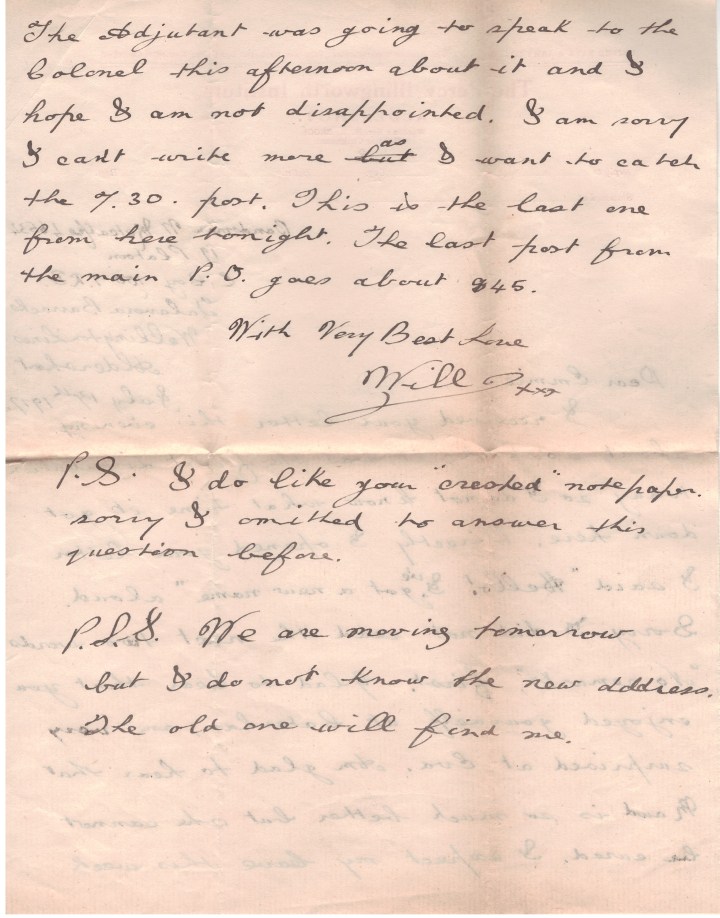 The Adjutant was going to speak to the
Colonel this afternoon about it and I
hope I am not disappointed. I am sorry
I can't write more but as I want to catch
the 7.30. post. This is the last one
from here tonight. The last post from
the main P.O. goes about 845.
With Very Best Love
Will xxx
P.S. I do like your "crested" notepaper.
sorry I omitted to answer this
question before.
P.S.S. We are moving tomorrow
but I do not know the new address.
The old one will find me.